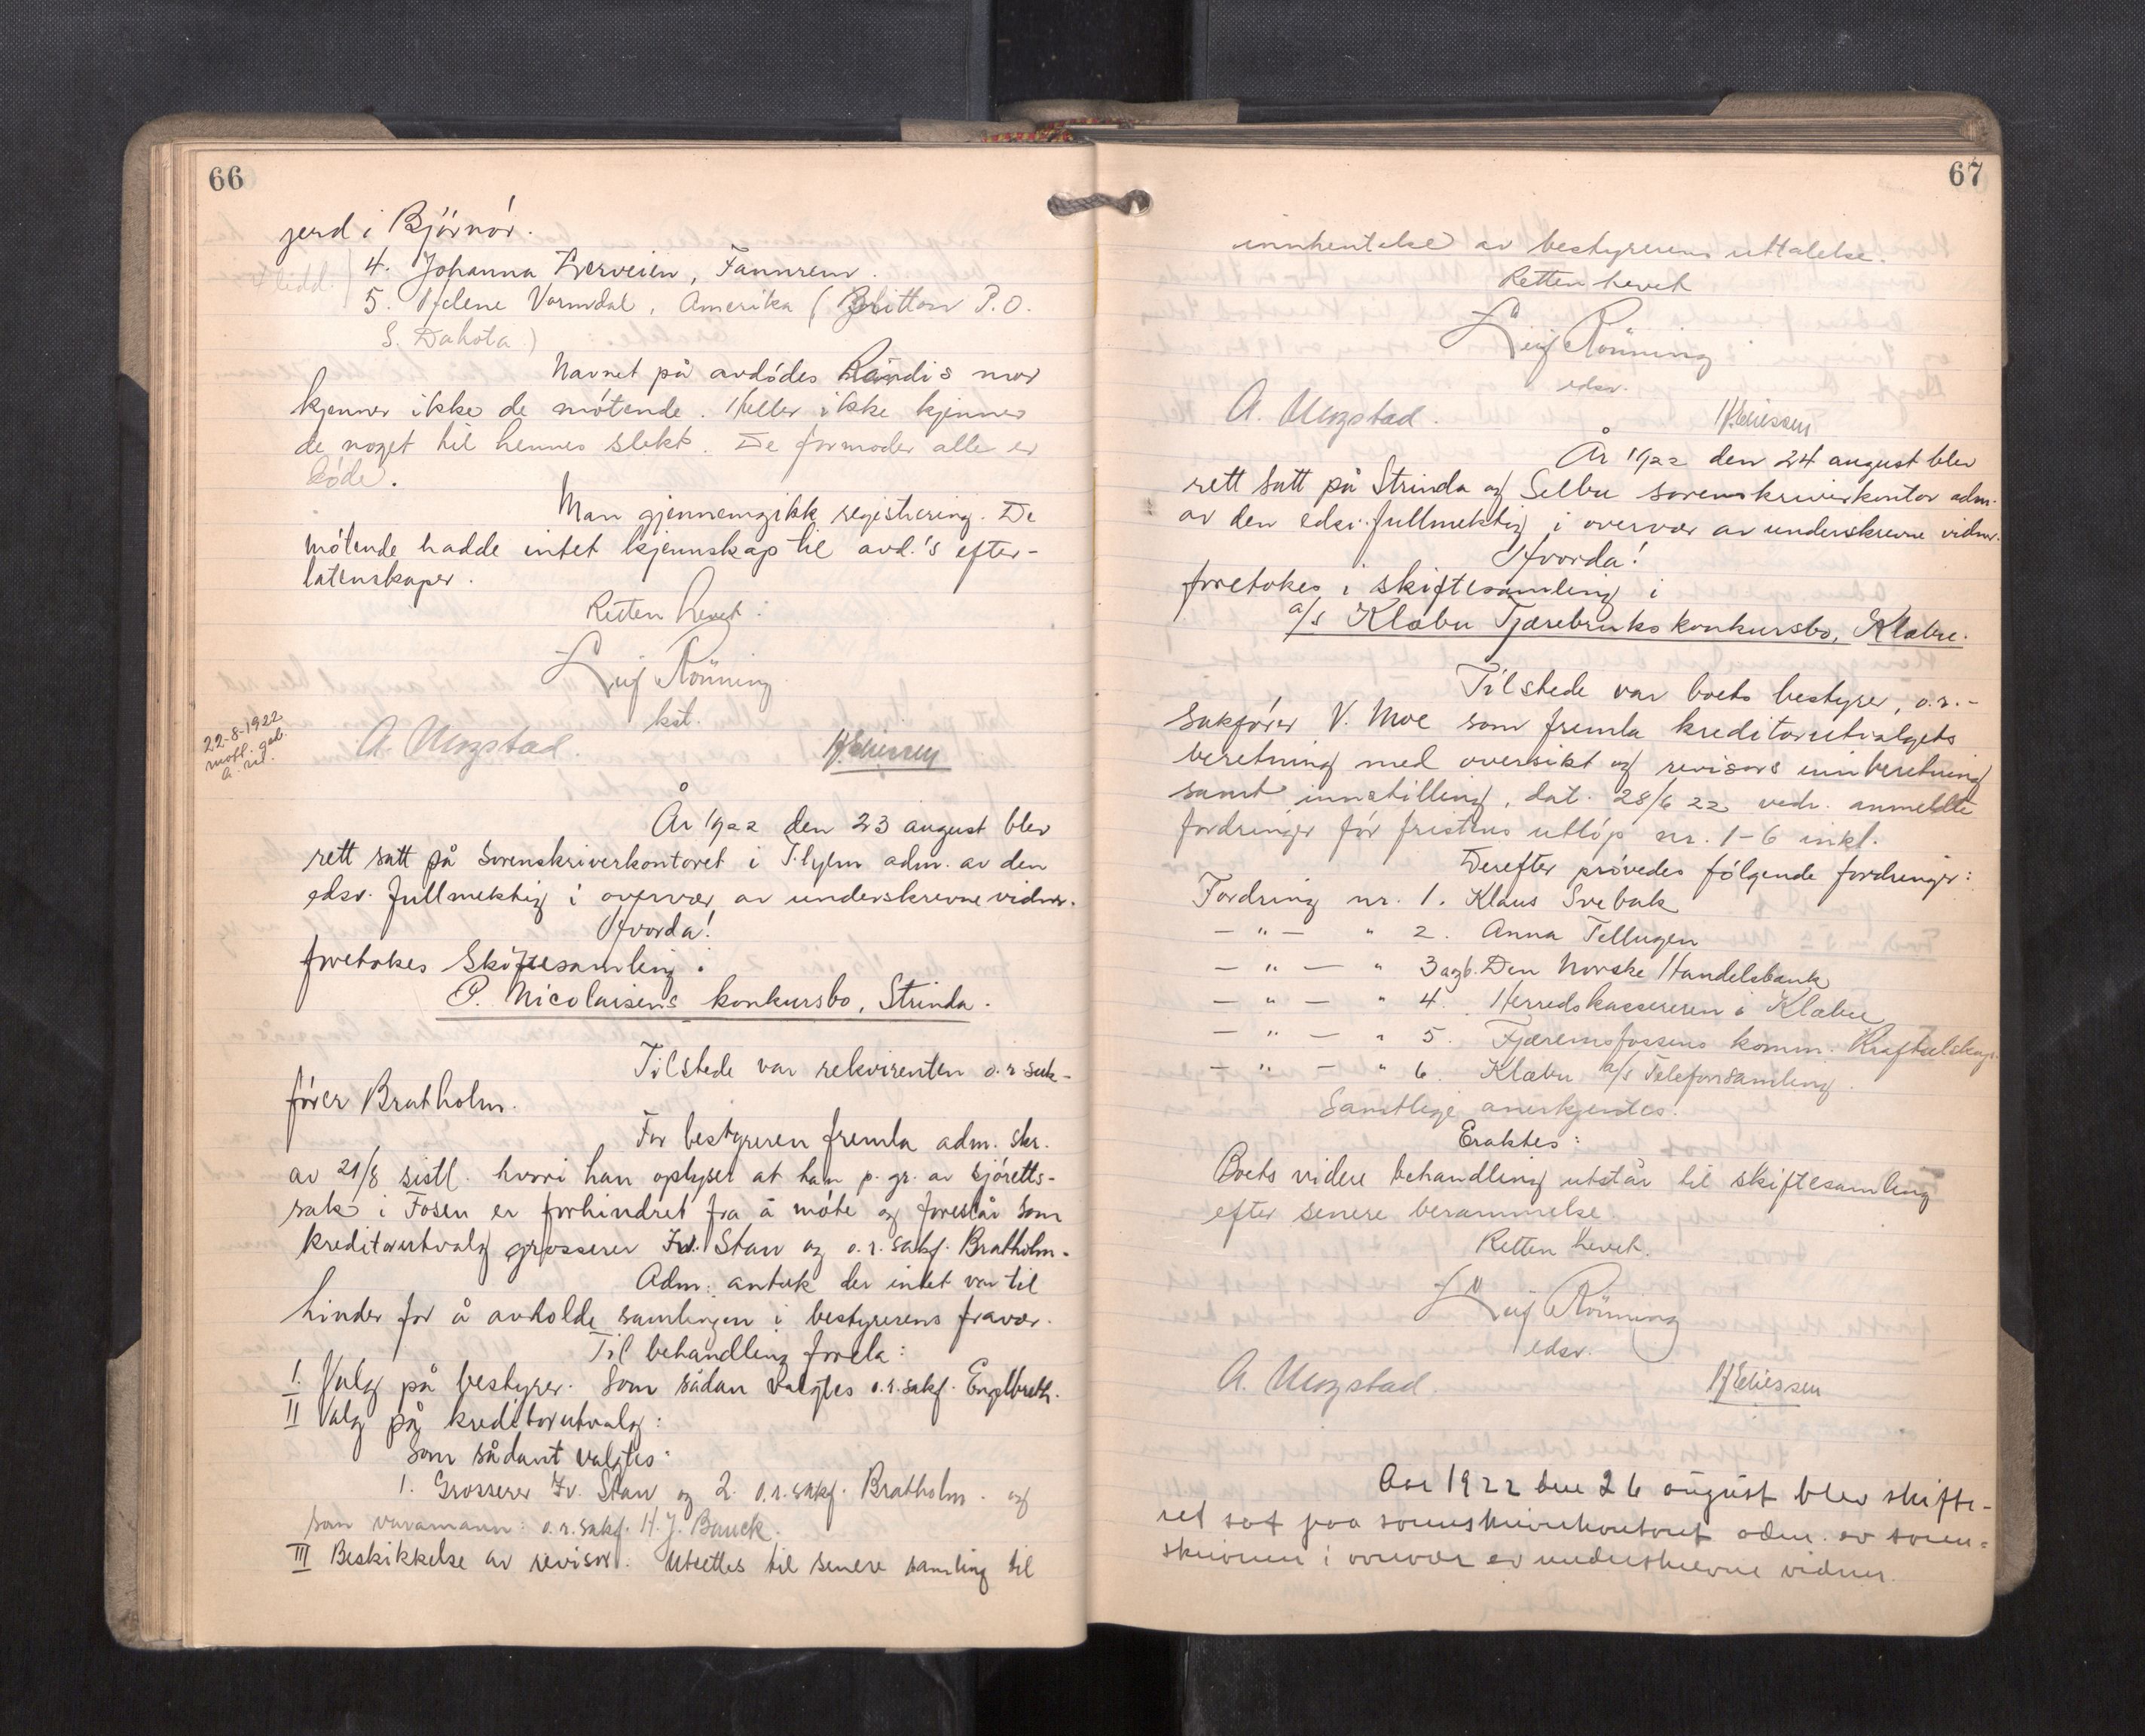 66
jerd i Bjørnør.
4. Johanna Tverveien, Fannrem.
5. Helene Varmdal, Amerika (Britton P.O.
S. Dakota)
Navnet på avdødes Randis mor
kjenner ikke de møtende. Heller ikke kjenner
de noget til hennes slekt. De formoder alle er
døde.
Man gjennemgikk registrering. De
møtende hadde intet kjennskap til avd.'s efter-
latenskaper.
Retten hevet.
Leif Rönning
kst.
A. Ungstad. H. Eliessen
22-8-1922
År 1922 den 23 august blev
rett satt på Sorenskriverkontoret i T.hjem adm. av den
edsv. fullmektig i overvær av underskrevne vidner.
Hvorda!
foretokes skiftesamling i
P. Nicolaisens konkursbo, Strinda.
Tilstede var rekvirenten o.r.sak-
fører Bratholm.
For bestyreren fremla adm. skr.
av 21/8 sistl. hvori han oplyset at han p. gr. av sjøretts-
sak i Fosen er forhindret fra å møte og foreslår som
kreditorutvalg grosserer Fr. Stav og o.r.sakf. Bratholm.
Adm. antok der intet var til
hinder for å avholde samlingen i bestyrerens fravær.
Til behandling forela:
I. Valg på bestyrer. Som sådan valgtes o.r.sakf. Englbreth.
II Valg på kreditorutvalg:
Som sådant valgtes:
1. Grosserer Fr. Stav og 2. o.r.sakf. Bratholm. og
som varamann: o.r.sakf. H. J. Bauck.
III Beskikkelse av revisor. Utsettes til senere samling til
67
innhentelse av bestyrerens uttalelse.
Retten hevet
Leif Rönning
edsv.
A. Ungstad. H. Eliessen
År 1922 den 24 august blev
rett satt på Strinda og Selbu sorenskriverkontor adm.
av den edsv. fullmektig i overvær av underskrevne vidner.
Hvorda!
foretokes i skiftesamling i
a/s Klæbu Tjærebruks konkursbo, Klæbu.
Tilstede var boets bestyrer, o.r.-
sakfører V. Moe som fremla kreditorutvalgets
beretning med oversikt og revisors innberetning
samt innstilling, dat. 28/6 22 vedr. anmeldte
fordringer før fristens utløp nr. 1-6 inkl.
Derefter prøvedes følgende fordringer:
Fordring nr. 1. Klaus Svebak
— " — " 2. Anna Tellugen
— " — " 3 a og b. Den Norske Handelsbank
— " — " 4. Herredskassereren i Klæbu
— " — " 5. Fjæremsfossens komm. Kraftselskap.
— " — " 6. Klæbu a/s Telefonsamling.
Samtlige anerkjentes.
Eraktes:
Boets videre behandling utstår til skiftesamling
efter senere berammelse.
Retten hevet.
Leif Rönning
edsv.
A. Ungstad. H. Eliessen
Aar 1922 den 26 august blev skifte-
ret sat paa sorenskriverkontoret adm. av soren-
skriveren i overvær av underskrevne vidner.